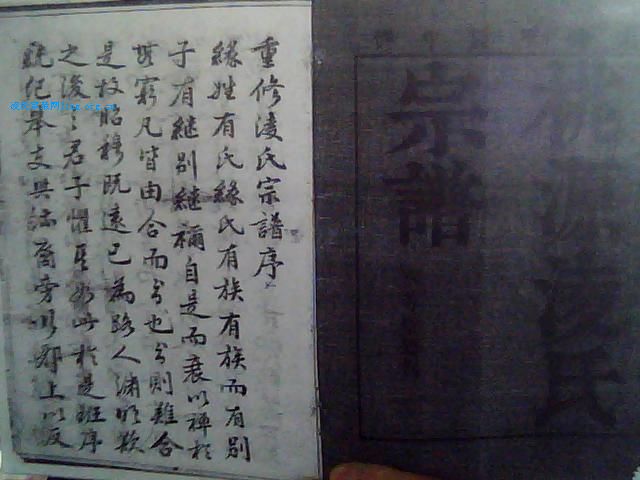 桃源淩氏
宗譜
重修淩氏宗譜序
緣姓有氏緣氏有族有族而有別
子有継別継禰自是而衰以禪於
無窮凡皆由合而分也分則難合
是故昭穆既遠已為路人淵明歎
之後之君子懼其如此於是班序
統纪舉支與裔旁以上以反